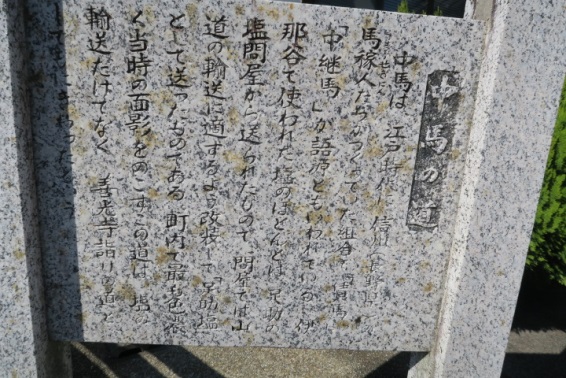 中馬の道
中馬は、江戸時代に信州(長野県)の
馬稼人たちがつくっていた組合で
「中継馬」が語源ともいわれている。伊
那谷で使われた塩のほとんどは、足助の
塩問屋から送られたもので、問屋では山
道の輸送に適するよう改装し「足助塩」
として送ったものである。町内で最も色濃
く当時の面影をのこすこの道は、塩
輸送だけでなく、善光寺詣りの道と